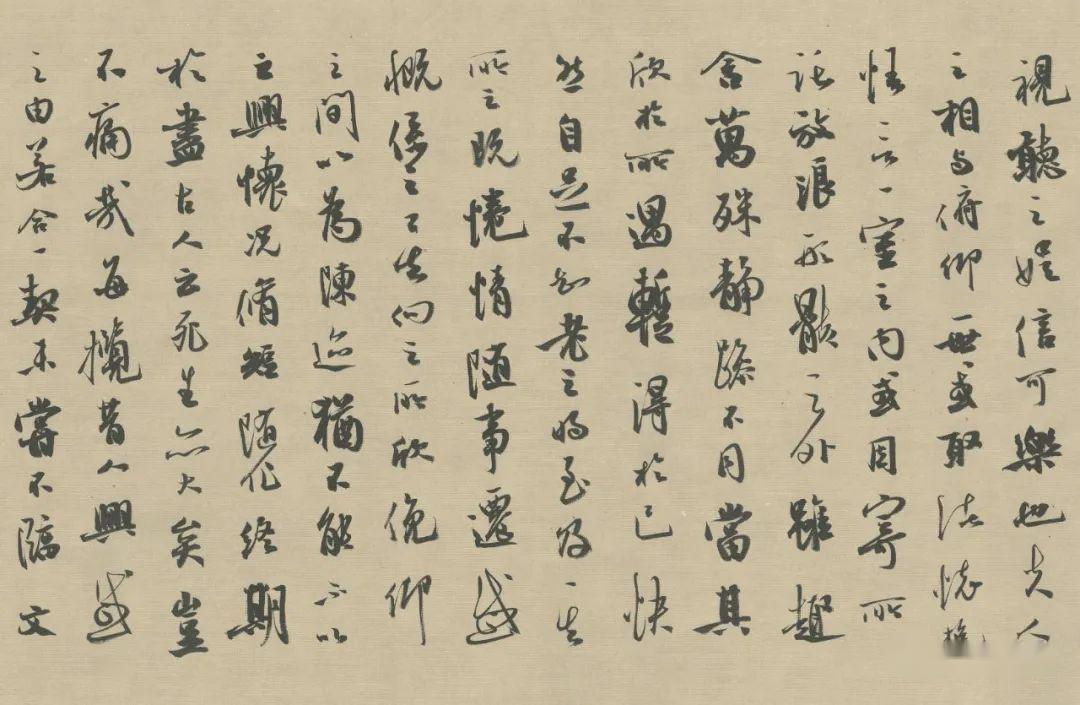 視聽之娛信可樂也夫人
之相與俯仰一世或取諸懷抱
悟言一室之内或因寄所
託放浪形骸之外雖趣
舍萬殊靜躁不同當其
欣於所遇暫得於己快
然自足不知老之將至及其
所之既惓情隨事遷感
慨係之矣向之所欣俛仰
之間以為陳迹猶不能不以
之興懷況脩短隨化終期
於盡古人云死生亦大矣豈
不痛哉每攬昔人興感
之由若合一契未嘗不臨文